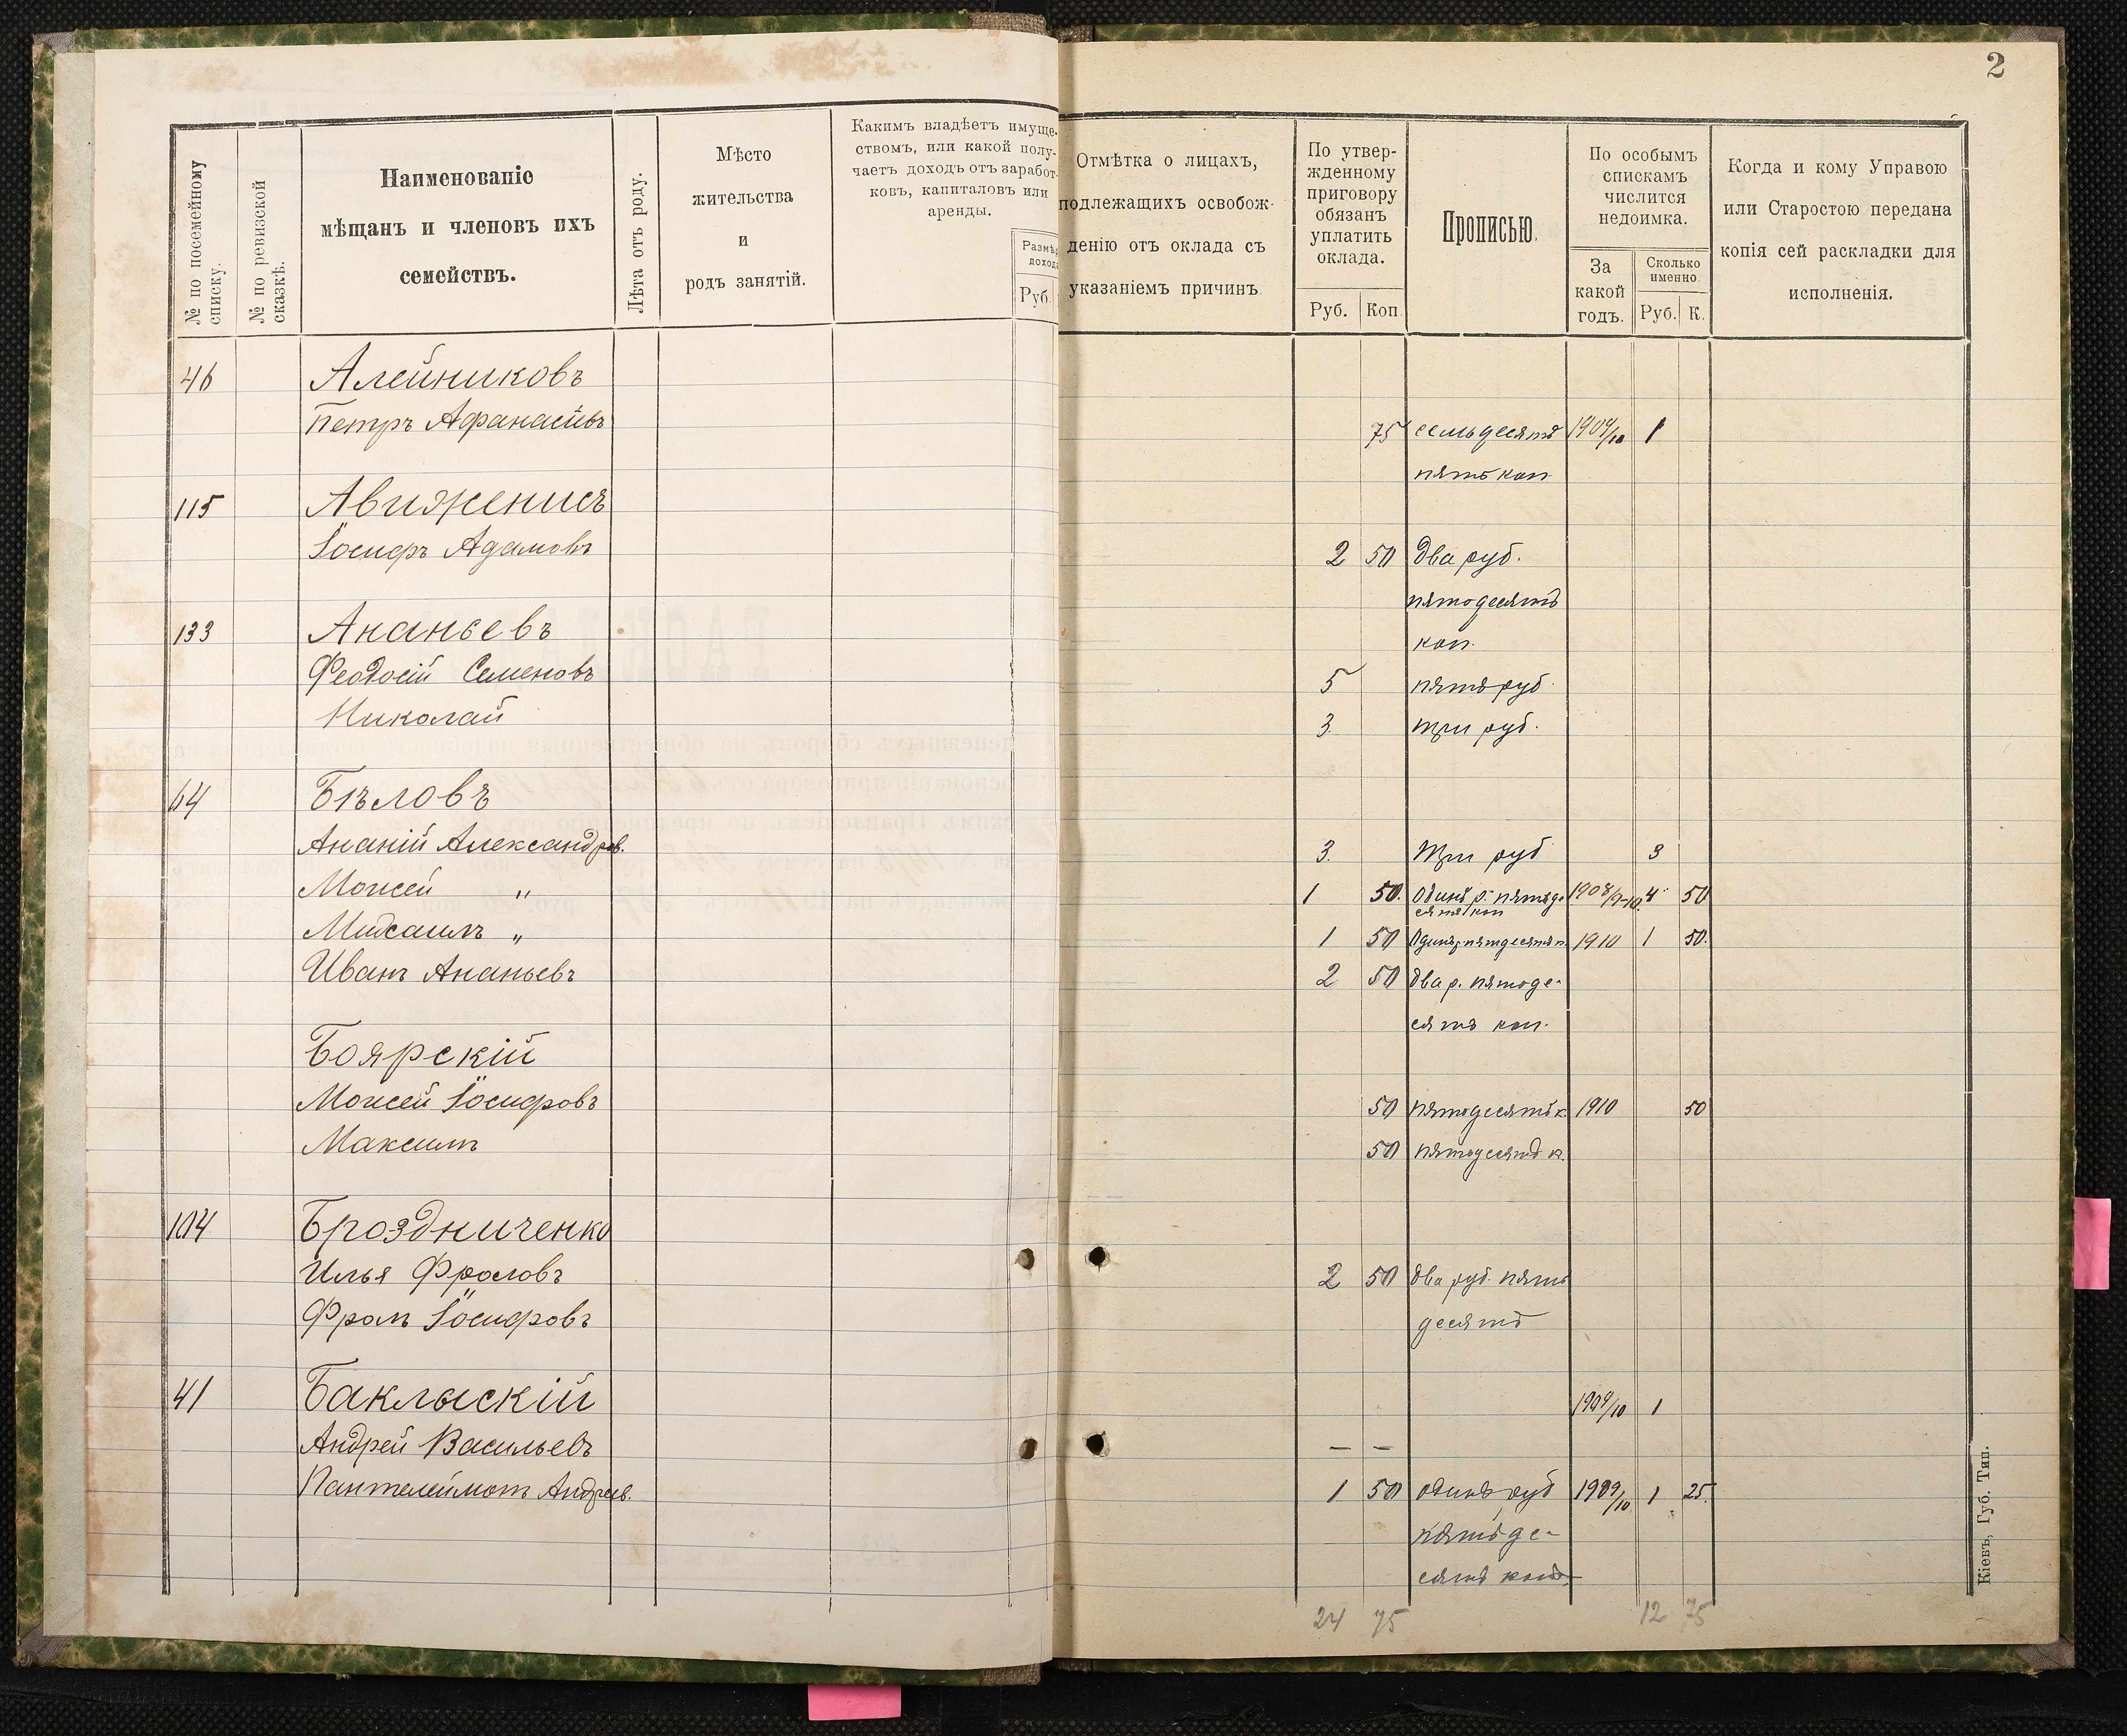 2
№ по посемейному списку.
№ по ревизской сказкѣ.
Наименованіе
мѣщанъ и членовъ ихъ
семействъ.
Лѣта отъ роду.
Мѣсто
жительства
и
родъ занятій.
Какимъ владѣетъ имуще-
ствомъ, или какой полу-
чаетъ доходъ отъ заработ-
ковъ, капиталовъ или
аренды.
Размѣр
дохода
Руб.
Отмѣтка о лицахъ,
подлежащихъ освобож-
денію отъ оклада съ
указаніемъ причинъ
По утвер-
жденному
приговору
обязанъ
уплатить
оклада.
Руб. Коп.
Прописью.
По особымъ
спискамъ
числится
недоимка.
За
какой
годъ.
Сколько
именно.
Руб. К.
Когда и кому Управою
или Старостою передана
копія сей раскладки для
исполненія.
46 Алейниковъ
Петръ Афанасіевъ 75 семьдесятъ 1909/10 1
пять коп.
115 Авижениса
Іосифъ Адамовъ 2 50 два руб.
пятьдесятъ
133 Ананьевъ коп.
Феодосій Семеновъ 5 пять руб.
Николай 3 три руб.
64 Бѣловъ
Ананій Александров. 3. три руб 3
Моисей " 1 50. Одинъ р. пятьде 1908/9-10. 4 50
сятъ коп
Михаилъ " 1 50 Одинъ р. пятдесятъ к. 1910 1 50.
Иванъ Ананьевъ 2 50 два р. пятьде-
сятъ коп.
Боярскій
Моисей Іосифовъ 50 пятьдесятъ к. 1910 50
Максимъ 50 пятьдесятъ к.
104 Броздниченко
Илья Фроловъ 2 50 два руб. пять
Фролъ Іосифовъ десятъ
41 Баклыскій 1909/10 1
Андрей Васильевъ — —
Пантелеймонъ Андреев. 1 50 одинъ руб 1909/10 1 25.
пятьде-
сятъ коп.
24 75 12 75
Кіевъ, Губ. Тип.